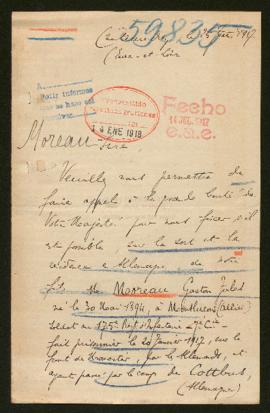 59835
le 25 1917
Eure-et-Loir
A.
Pedir informes
14 ENE 1918
Fecho
e.a.e.
Moreau
Sire
Veuillez nous permettre de
faire appel à la grande bonté de
Votre Majesté pour nous fixer s'il
est possible, sur le sort et la
résidence en Allemagne de notre
fils Mr Moreau Gaston Jules
né le 30 Mai 1894, à Montluçon (Allier)
Soldat au 175e Regt d'Infanterie 2e Cie
fait prisonnier le 20 Janvier 1917, sur le
front de par les Allemands, et
ayant passé par le camp de Cottbus
(Allemagne)